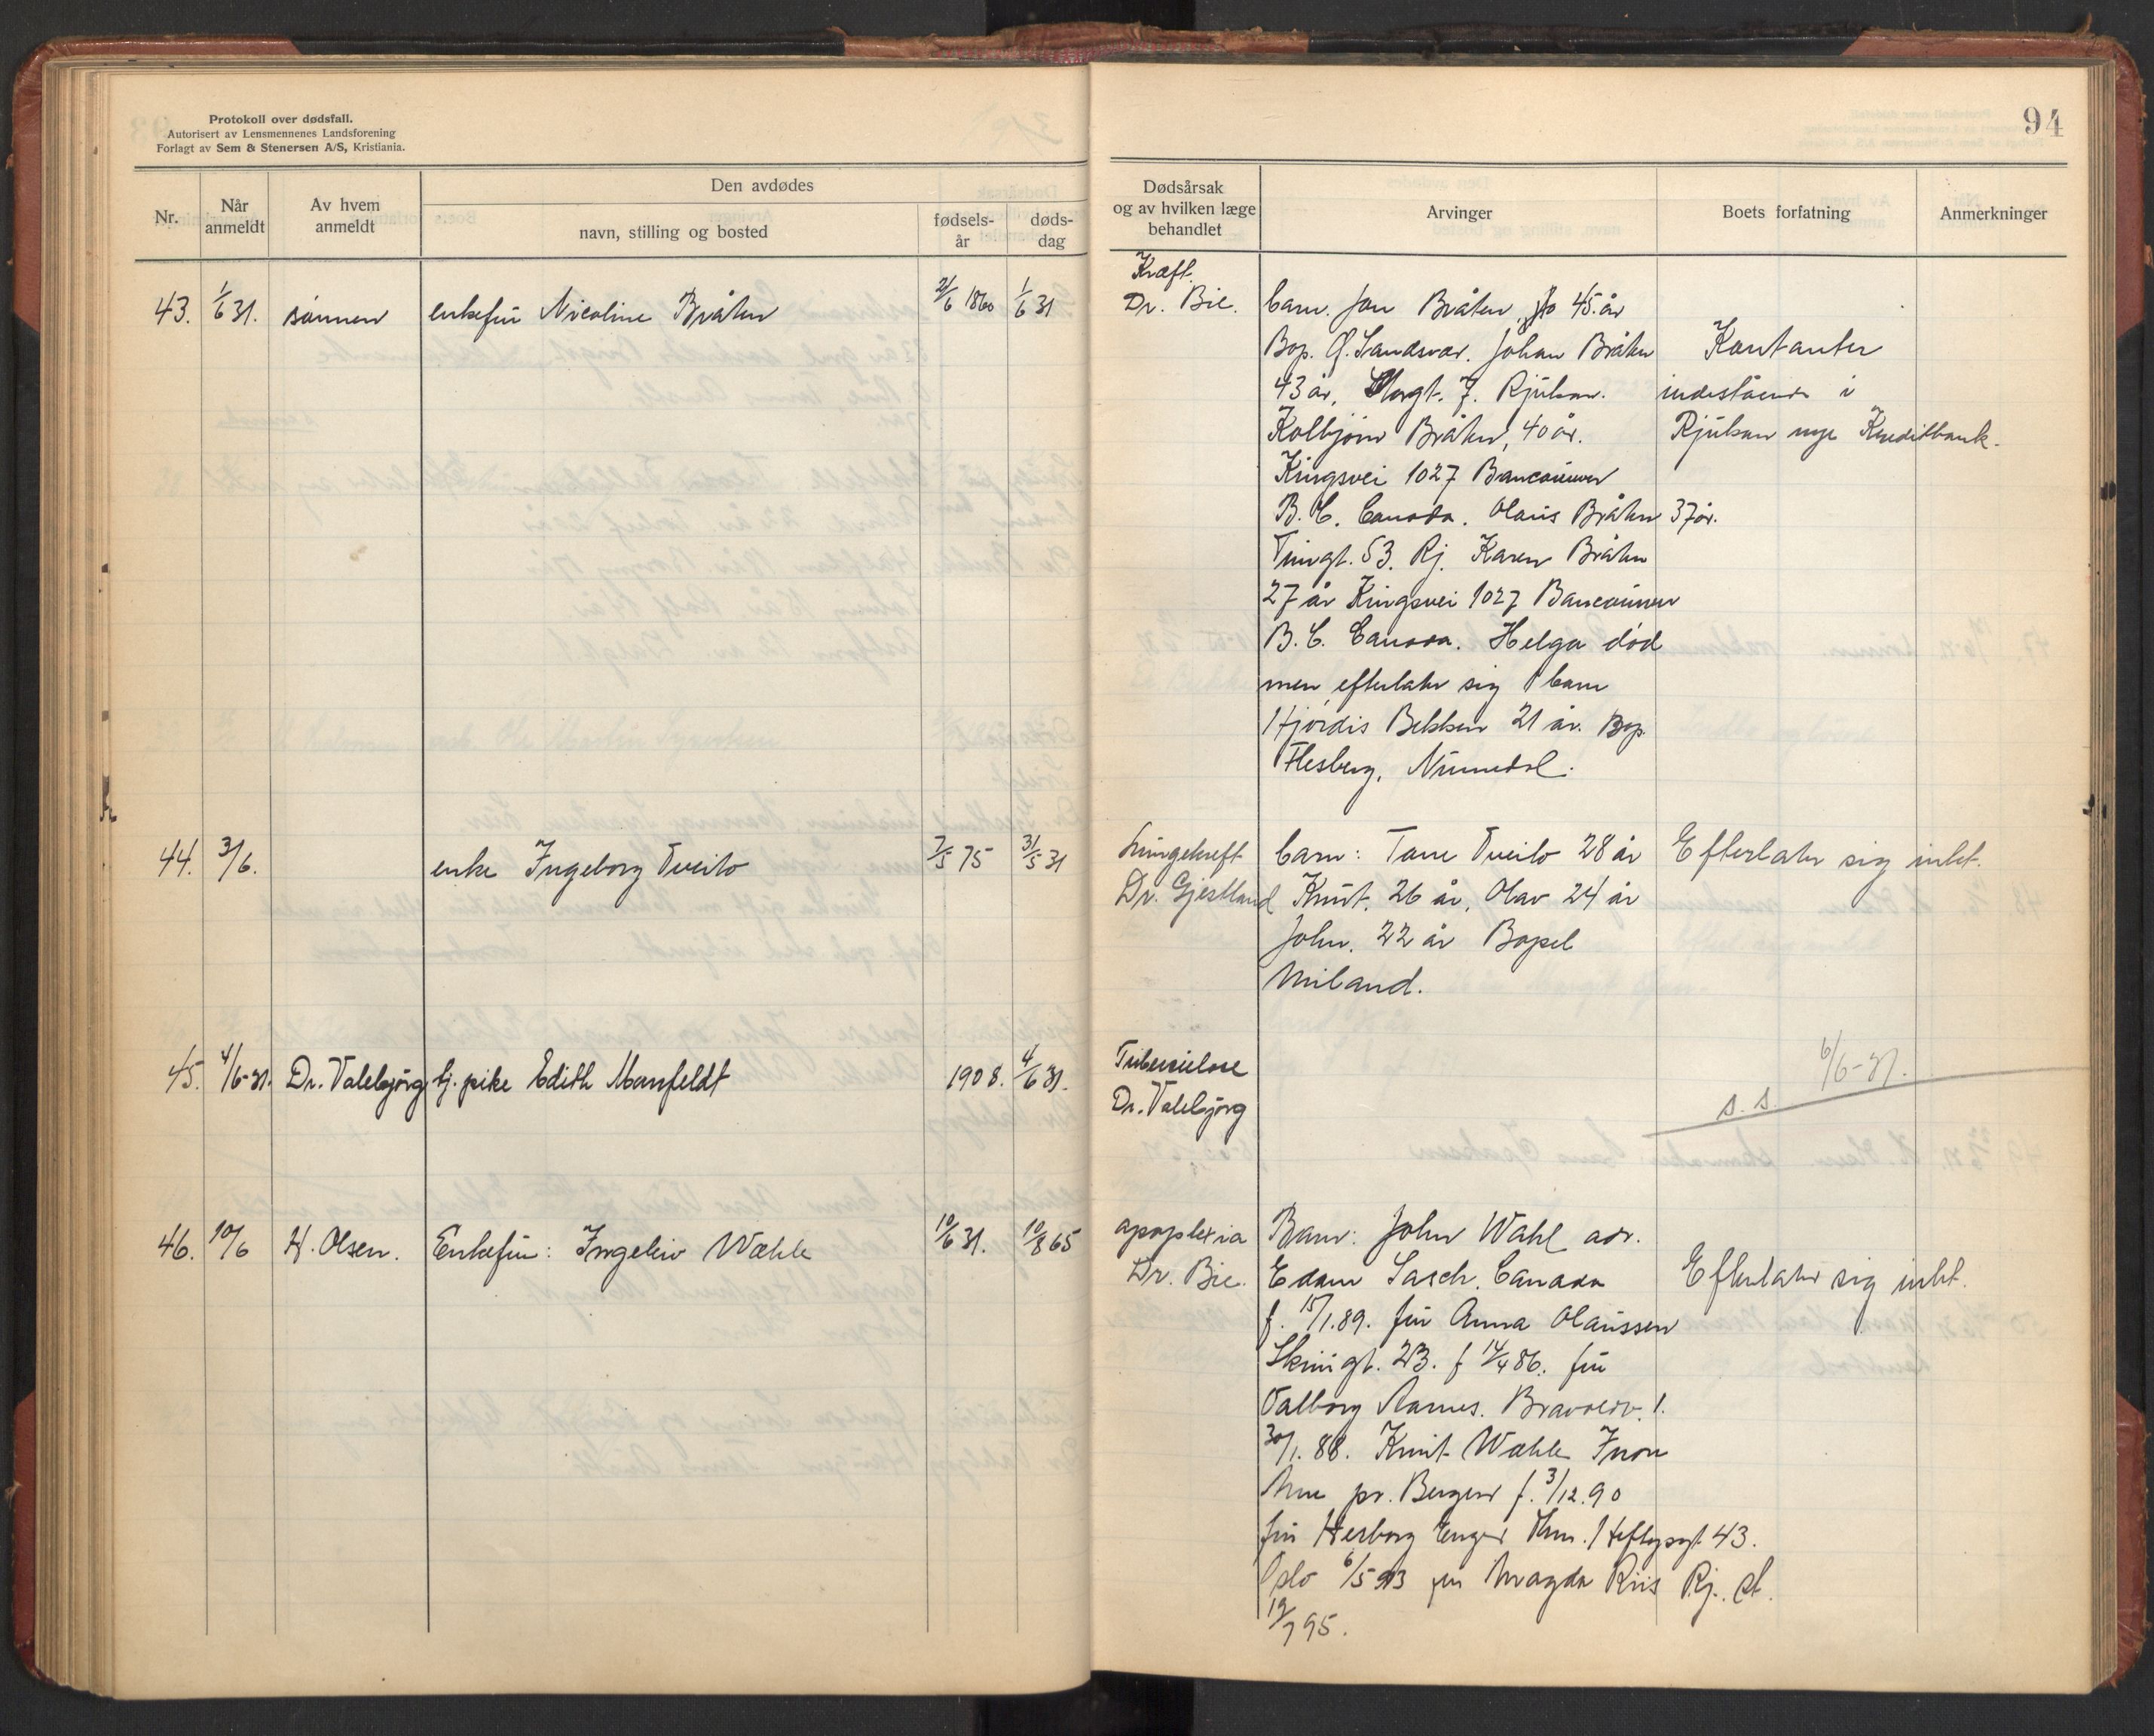 Protokoll over dødsfall.
Autorisert av Lensmennenes Landsforening
Forlagt av Sem & Stenersen A/S, Kristiania.
94
Nr.
Når anmeldt
Av hvem anmeldt
Den avdødes
navn, stilling og bosted
fødsels-år
døds-dag
Dødsårsak og av hvilken læge behandlet
Arvinger
Boets forfatning
Anmerkninger
43. 1/6 31. sønnen enkefru Nicoline Bråten 2/6 1860 1/6 31
Kræft.
Dr. Bie.
barn. Jon Bråten, 45 år
Bop. Ø. Sandsvær. Johan Bråten
43 år, gt. 7. Rjukan.
Kolbjørn Bråten, 40 år.
Kingsvei 1027 Vancouver
B.C. Canada. Olaus Bråten 37 år.
Tinngt. 53. Rj. Karen Bråten
27 år Kingsvei 1027 Vancouver
B.C. Canada. Helga død
men efterlater sig 1 barn
Hjørdis Bekken 21 år. Bop.
Flesberg, Numedal.
Kontanter
indestående i
Rjukan nye Kreditbank.
44. 3/6. enke Ingeborg Tveito 7/5 75 31/5 31
Lungekreft
Dr. Gjestland
barn: Tone Tveito 28 år
Knut. 26 år, Olav 24 år
John. 22 år Bopel
Miland.
Efterlater sig intet.
45. 4/6-31. Dr. Valebjørg tj. pike Edith Manfeldt 1908. 4/6 31.
Tuberculose
Dr. Valebjørg
6/6-31.
s. s.
46. 10/6 H. Olsen. Enkefru: Ingeleiv Wæhle 10/6 31. 10/8 65
apoplexia
Dr. Bie.
Barn: John Wahl adr.
Edam Sasch. Canada
f. 15/1.89. fru Anna Olaussen
Skriugt. 23. f 14/4 86. fru
Valborg Aarnes. 1.
30/1.88. Knut Wæhle
pr. Bergen f. 3/12.90
fru Herborg Enger Thm. Heftyesgt 43.
Oslo 6/5 93 fru Magda Riis Rj. st.
19/7 95.
Efterlater sig intet.